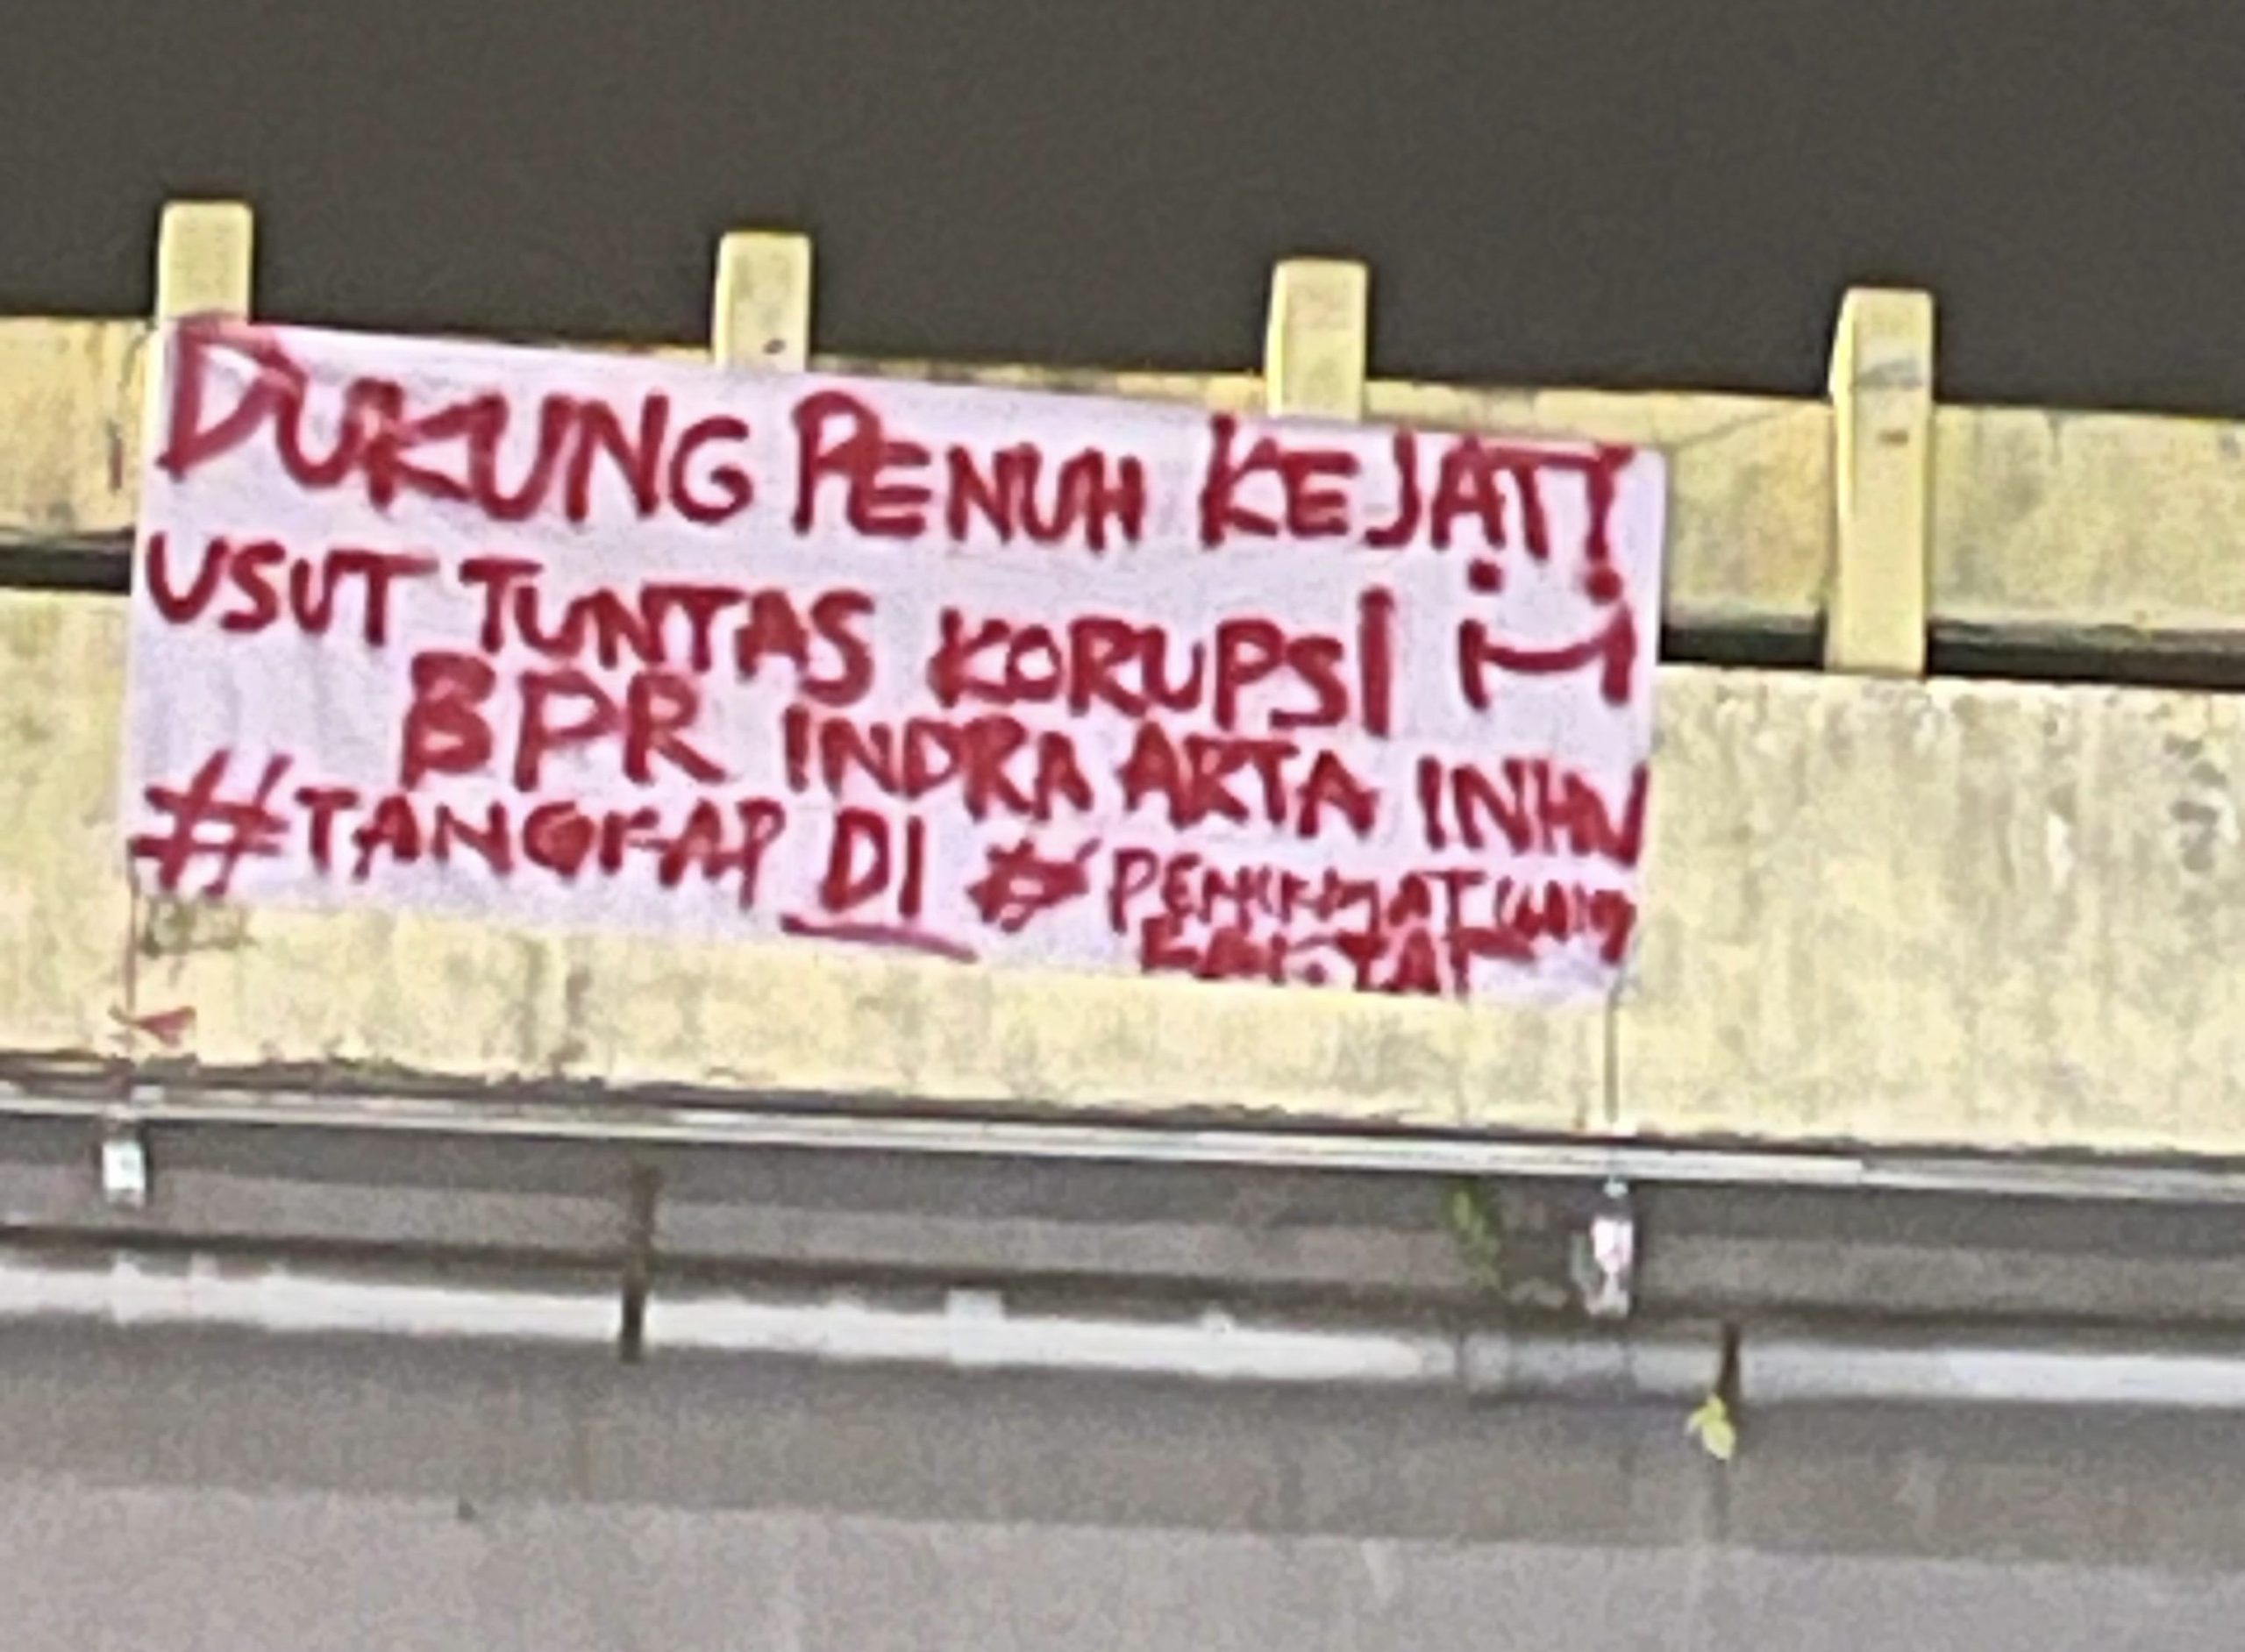 DUKUNG PENUH KEJATI
USUT TUNTAS KORUPSI
BPR INDRA ARTA INHU
#TANGKAP DI #PENIKMAT UANG